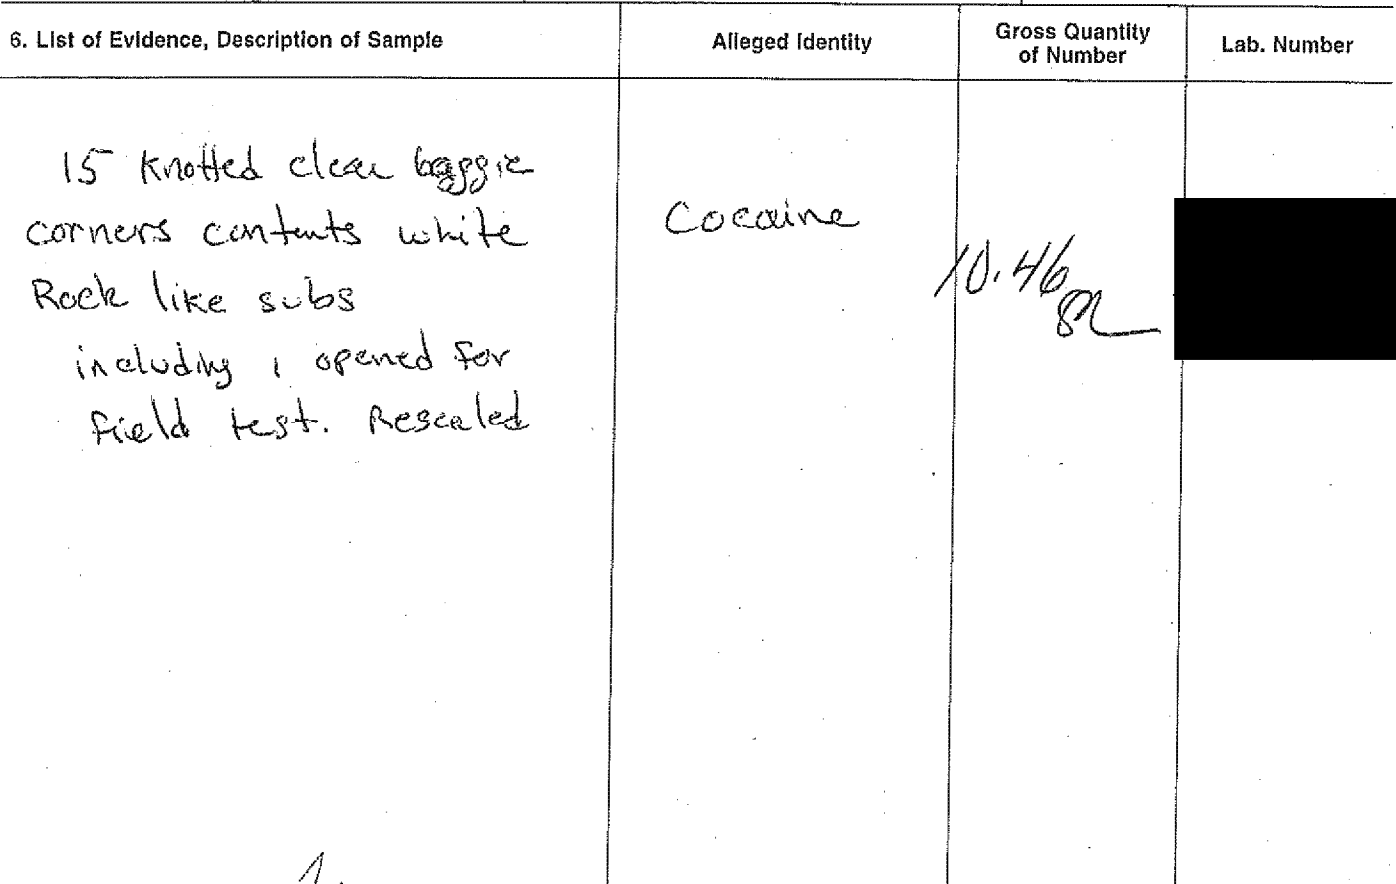 6. List of Evidence, Description of Sample
Alleged Identity
Gross Quantity
of Number
Lab. Number
15 Knotted clear baggie
corners contents white
Rock like subs
including 1 opened for
field test. Resealed
Cocaine
10.46